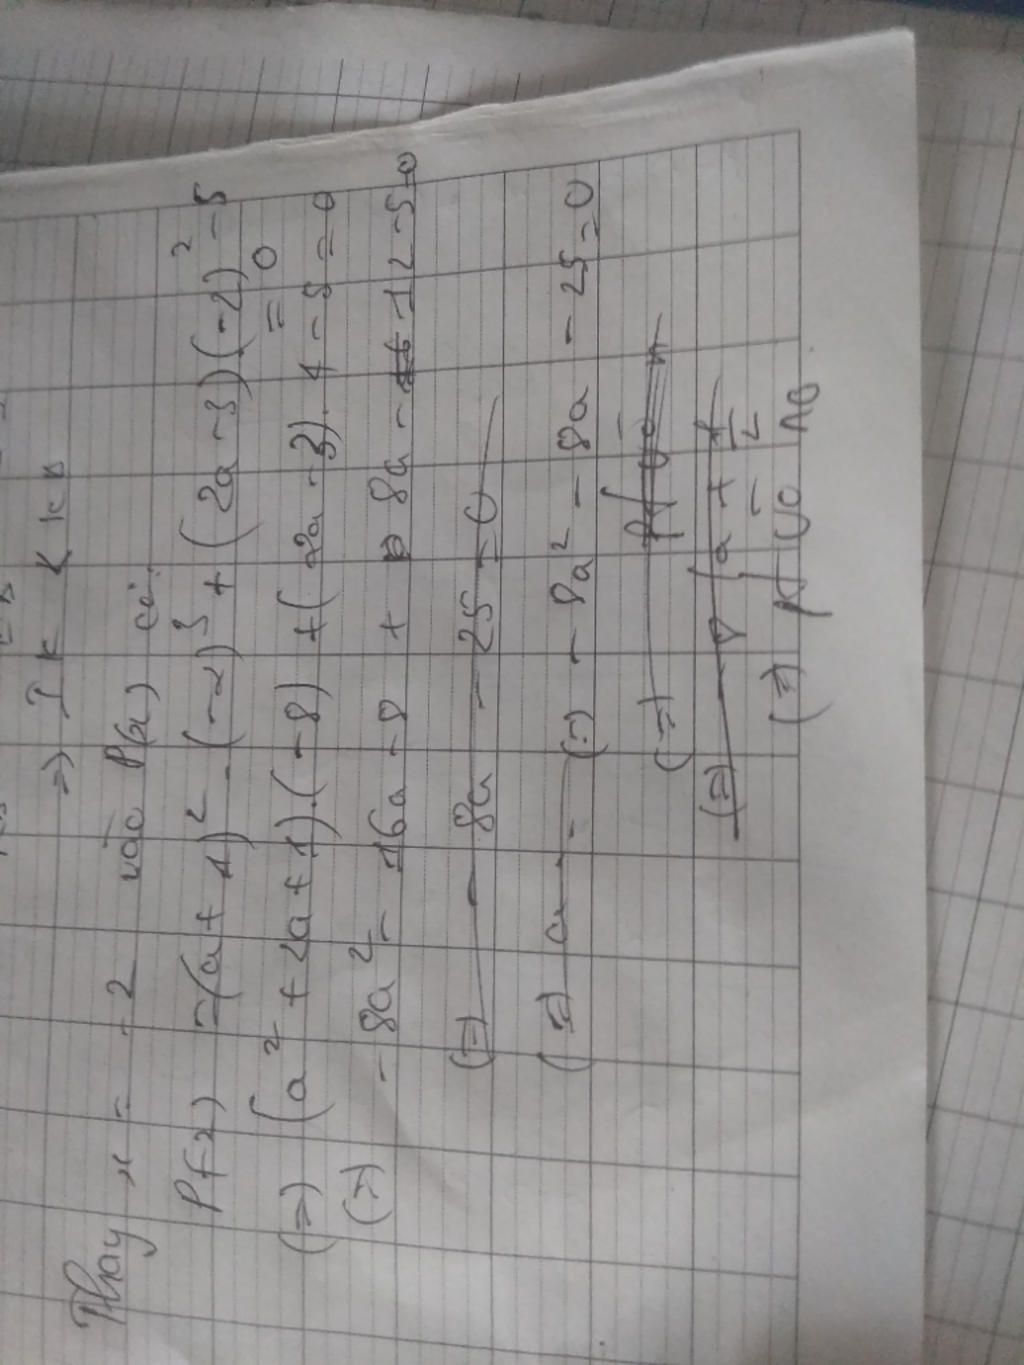 => I K K KB
Thay x = -2 vào P(x) có:
P(-2) = (a+1)². (-2)³ + (2a-3)(-2)² - 5 = 0
(=) (a² + 2a + 1).(-8) + (2a-3).4 - 5 = 0
(=) - 8a² - 16a - 8 + 8a - 12 - 5 = 0
(=) - 8a - 25 = 0
(=) a - (=) - 8a² - 8a - 25 = 0
(=)
(=)
(=) pt vô n0.